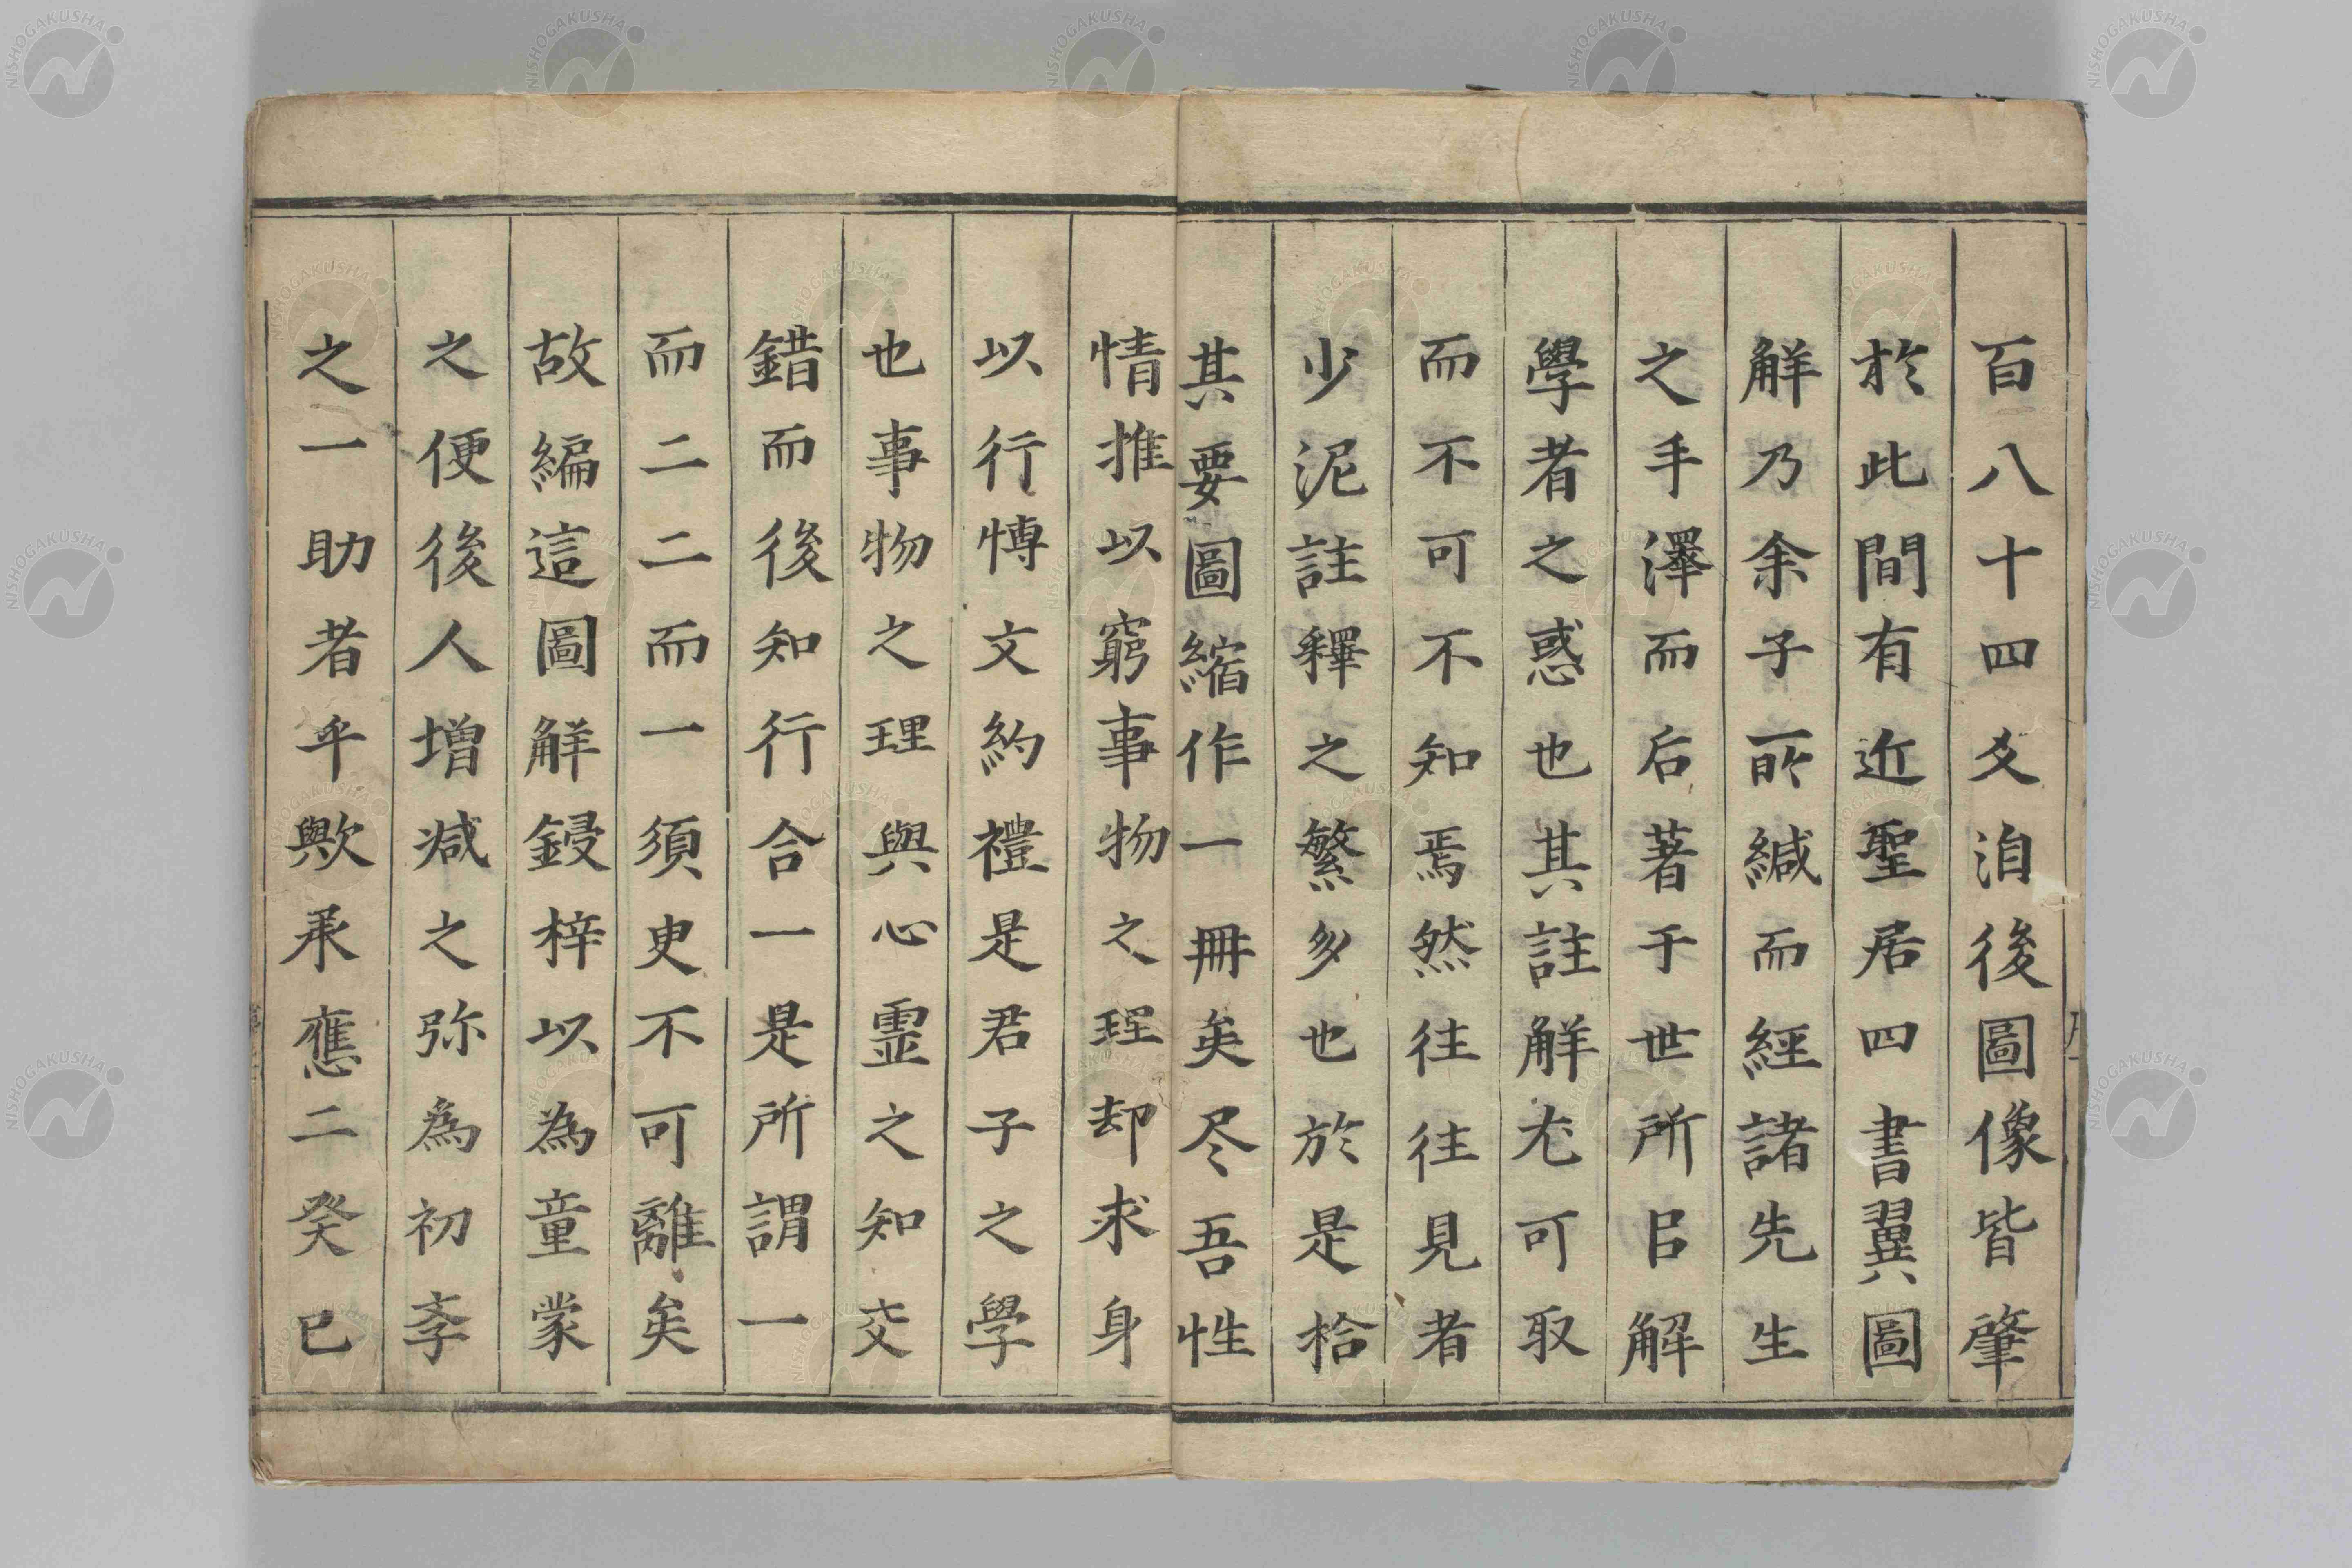 百八十四爻洎後圖像皆肇
於此間有近聖居四書翼圖
觧乃余子所緘而經諸先生
之手澤而后著于世所㠯解
學者之惑也其註觧尤可取
而不可不知焉然往往見者
少泥註釋之繁多也於是拾
其要圖縮作一冊矣尽吾性
情推以窮事物之理却求身
以行慱文約禮是君子之學
也事物之理與心霊之知交
錯而後知行合一是所謂一
而二二而一須臾不可離矣
故編這圖觧鋟梓以為童蒙
之便後人增减之弥為初斈
之一助者乎歟承應二癸巳
NISHOGAKUSHA